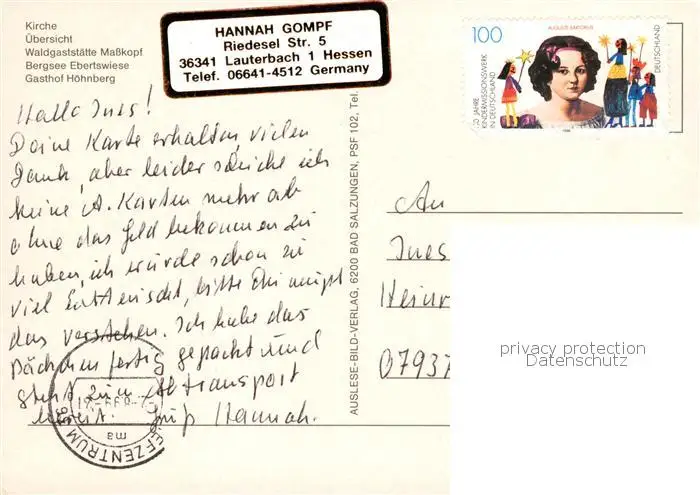 Kirche
Übersicht
Waldgaststätte Maßkopf
Bergsee Ebertswiese
Gasthof Höhnberg
HANNAH GOMPF
Riedesel Str. 5
36341 Lauterbach 1 Hessen
Telef. 06641-4512 Germany
100
AUGUSTE SARTORIUS
150 JAHRE
KINDERMISSIONSWERK
IN DEUTSCHLAND
DEUTSCHLAND
Hallo Ines!
Deine Karte erhalten, vielen
Dank, aber leider schicke ich
keine A. Karten mehr ab
ohne das Geld bekommen zu
haben, ich wurde schon zu
viel Enttäuscht, bitte Du musst
das verstehen. Ich habe das
Päckchen fertig gepackt und
steht zum Abtransport
bereit. Gruß Hannah.
AUSLESE-BILD-VERLAG, 6200 BAD SALZUNGEN, PSF 102, Tel.
An
Ines
Heinr
07937
BRIEFZENTRUM 36
ma
privacy protection
Datenschutz